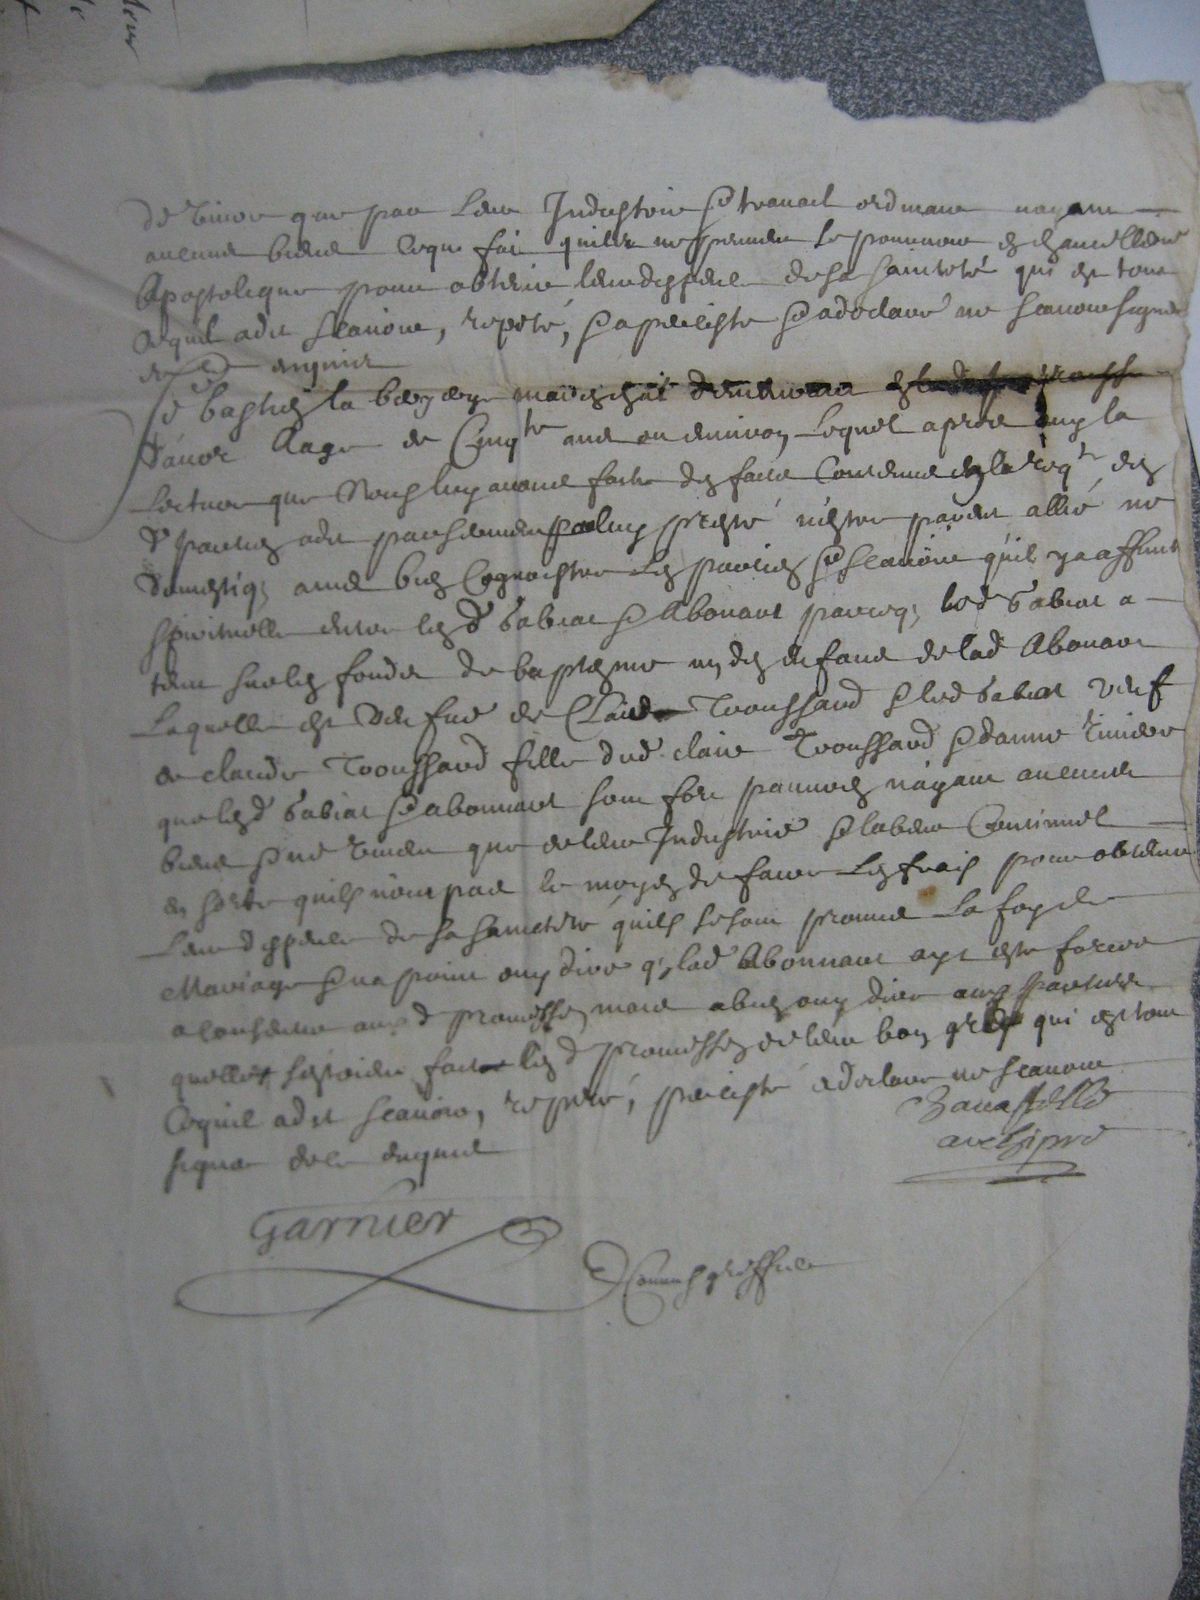 de vivre que par leur Industrie & travail ordinaire nayant
aucuns biens ce qui fai quils ne peuvent se pourvoir en chancellerie
Apostolique pour obtenir leur dispence de sa sainteté qui est tout
ce quil a dit scavoir, repeté, & a persisté & a declaré ne scavoir signer
de ce enquis
Sebastien la marechal
aage de Cinq.te ans ou environ, Lequel apres ouy la
Lecture que Nous luy avons faite des faits Contenus en la req.te des
d parties a dit par serment par luy presté n'estre parent allié ne
domestiq; ains bien Cognoistre les parties & scavoir qu'il y a affinité
spirituelle entre les d Sabiat & Abonant parceq; led Sabiat a
tenu sur les fonds de baptesme un des enfans de lad Abonant
Laquelle est vefve de Claude Troussard & led Sabiat veuf
de claude Troussard fille dud claude Troussard & danne
que lesd Sabiat & abonnant sont fort pauvres n'ayant aucuns
biens & ne vivent que de leur Industrie & labeur Continuel
en sorte quils n'ont pas le moyen de faire Les frais pour obtenir
Leur dispence de sa sainteté quils se sont promis La foy de
Mariage & na point ouy dire q; lad Abonnant ayt esté forcée
a consentir aux d promesses, mais a bien ouy dire aux parties
quelles sestoient faites les d promesses de leur bon gré qui est tout
Ce quil a dit scavoir, repeté, persisté a declaré ne scavoir
signer de ce enquis
Garnier
greffier